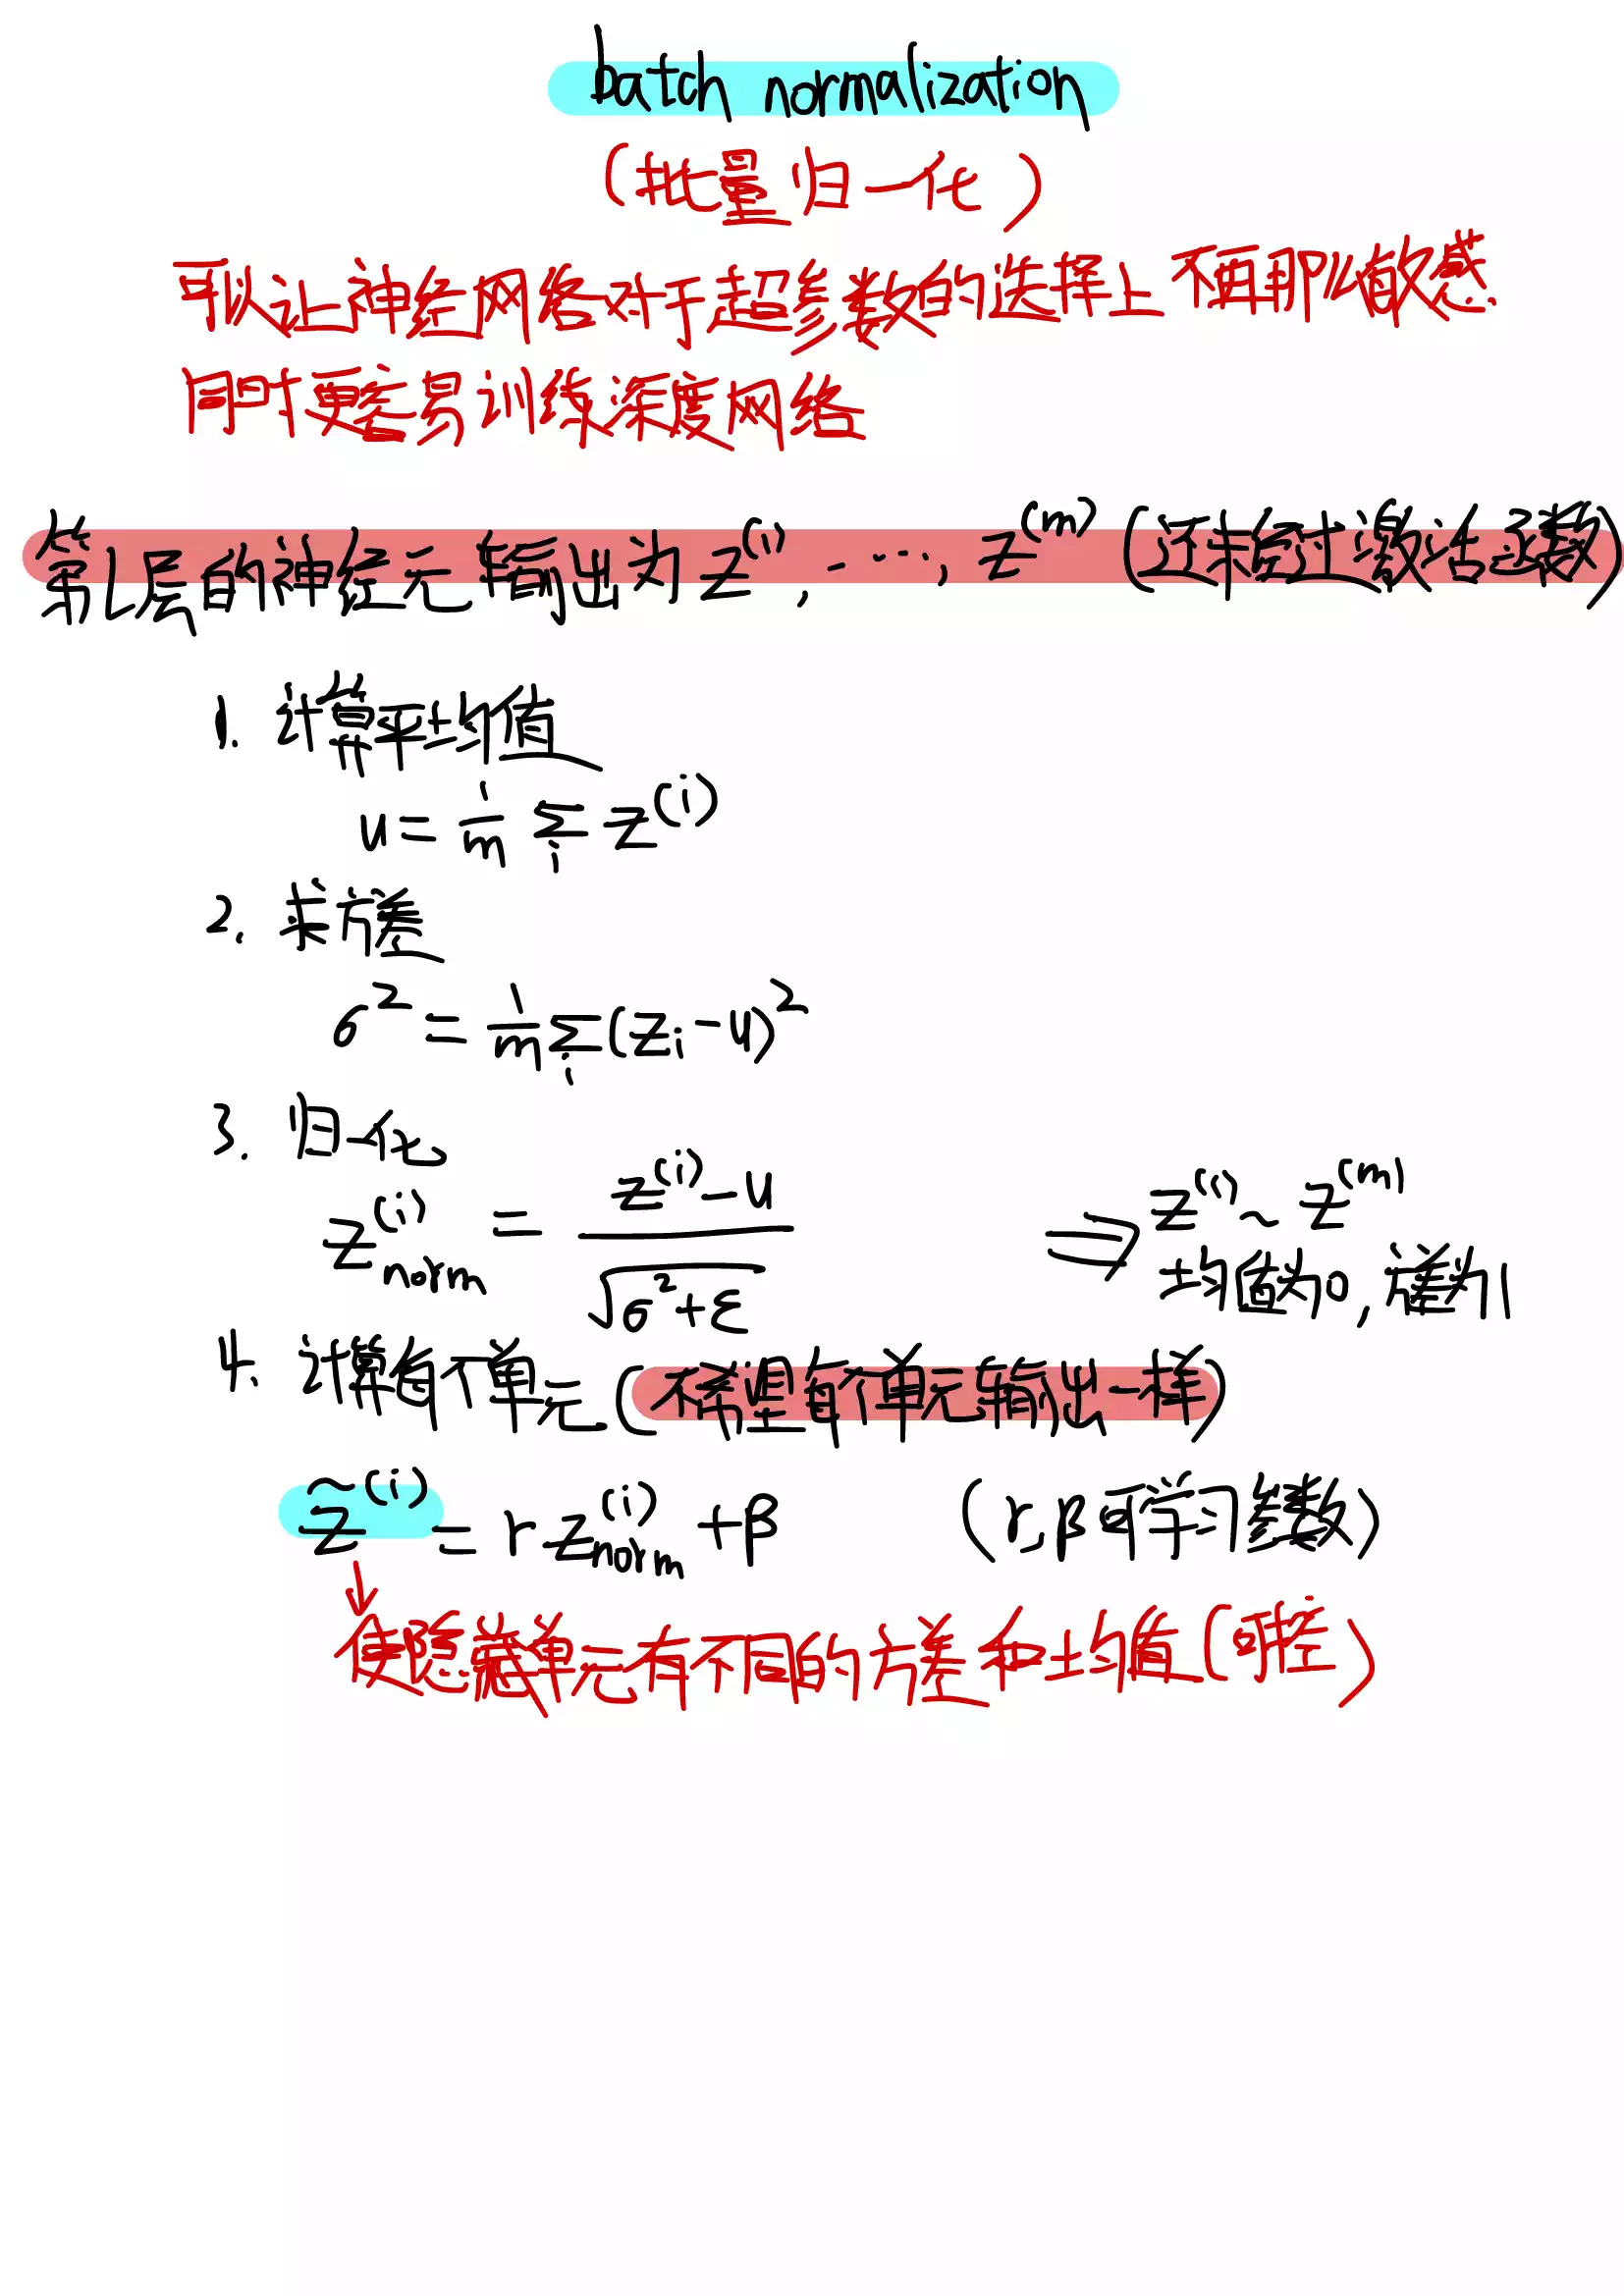 batch normalization
(批量归一化)
可以让神经网络对于超参数的选择上不再那么敏感.
同时更容易训练深度网络
第L层的神经元输出为 z^(1), ..., z^(m) (还未经过激活函数)
1. 计算平均值
u = 1/m Σ_i z^(i)
2. 求方差
σ^2 = 1/m Σ_i (z_i - u)^2
3. 归一化
z_norm^(i) = (z^(i) - u) / √(σ^2 + ε) ⇒ z^(1) ~ z^(m)
均值为0, 方差为1
4. 计算每个单元 (不希望每个单元输出一样)
z̃^(i) = r z_norm^(i) + β (r, β 可学习参数)
↓
使隐藏单元有不同的方差和均值 (可控)